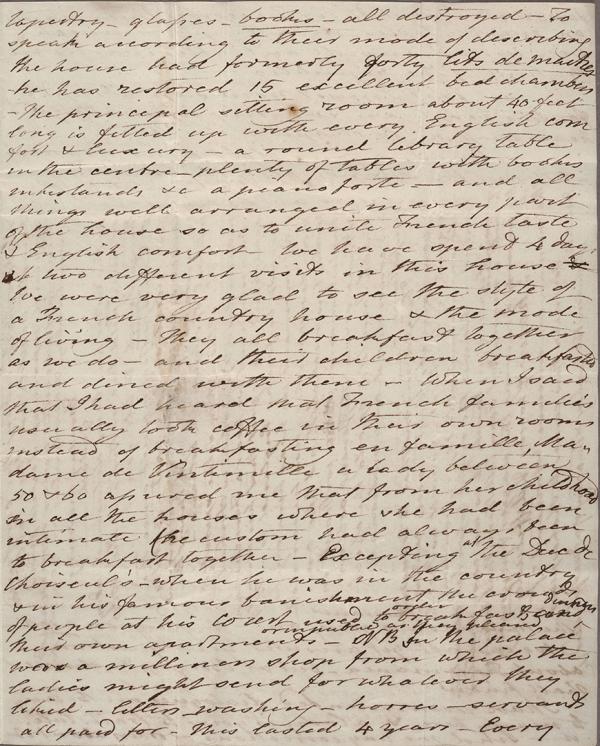 tapestry - glasses - books - all destroyed - To
speak according to their mode of describing
the house had formerly forty lits de maitres
he has restored 15 excellent bedchambers
- the principal sitting room about 40 feet
long is fitted up with every English com
fort & luxury - a round library table
in the centre - plenty of tables with books
inkstands &c a pianoforte - and all
things well arranged in every part
of the house so as to unite French taste
& English comfort We have spent 4 days
at two different visits in this house
We were very glad to see the style of
a French country house & the mode
of living - they all breakfast together
as we do - and their children breakfasted
and dined with them - When I said
that I had heard that French families
usually took coffee in their own rooms
instead of breakfasting en famille, Ma-
dame de Vintimille a lady between
50 & 60 assured me that from her childhood
in all the houses where she had been
intimate the custom had always been
to breakfast together - Excepting at the Duc de
Choiseuls - when he was in the country
& in his famous banishment the crowds
of people at his court used to order breakfast & dinners in
their own apartments or in public as they pleased - NB In the palace
was a milliners shop from which the
ladies might send for whatever they
liked - letters washing - horses - servants
all paid for - this lasted 4 years - Every